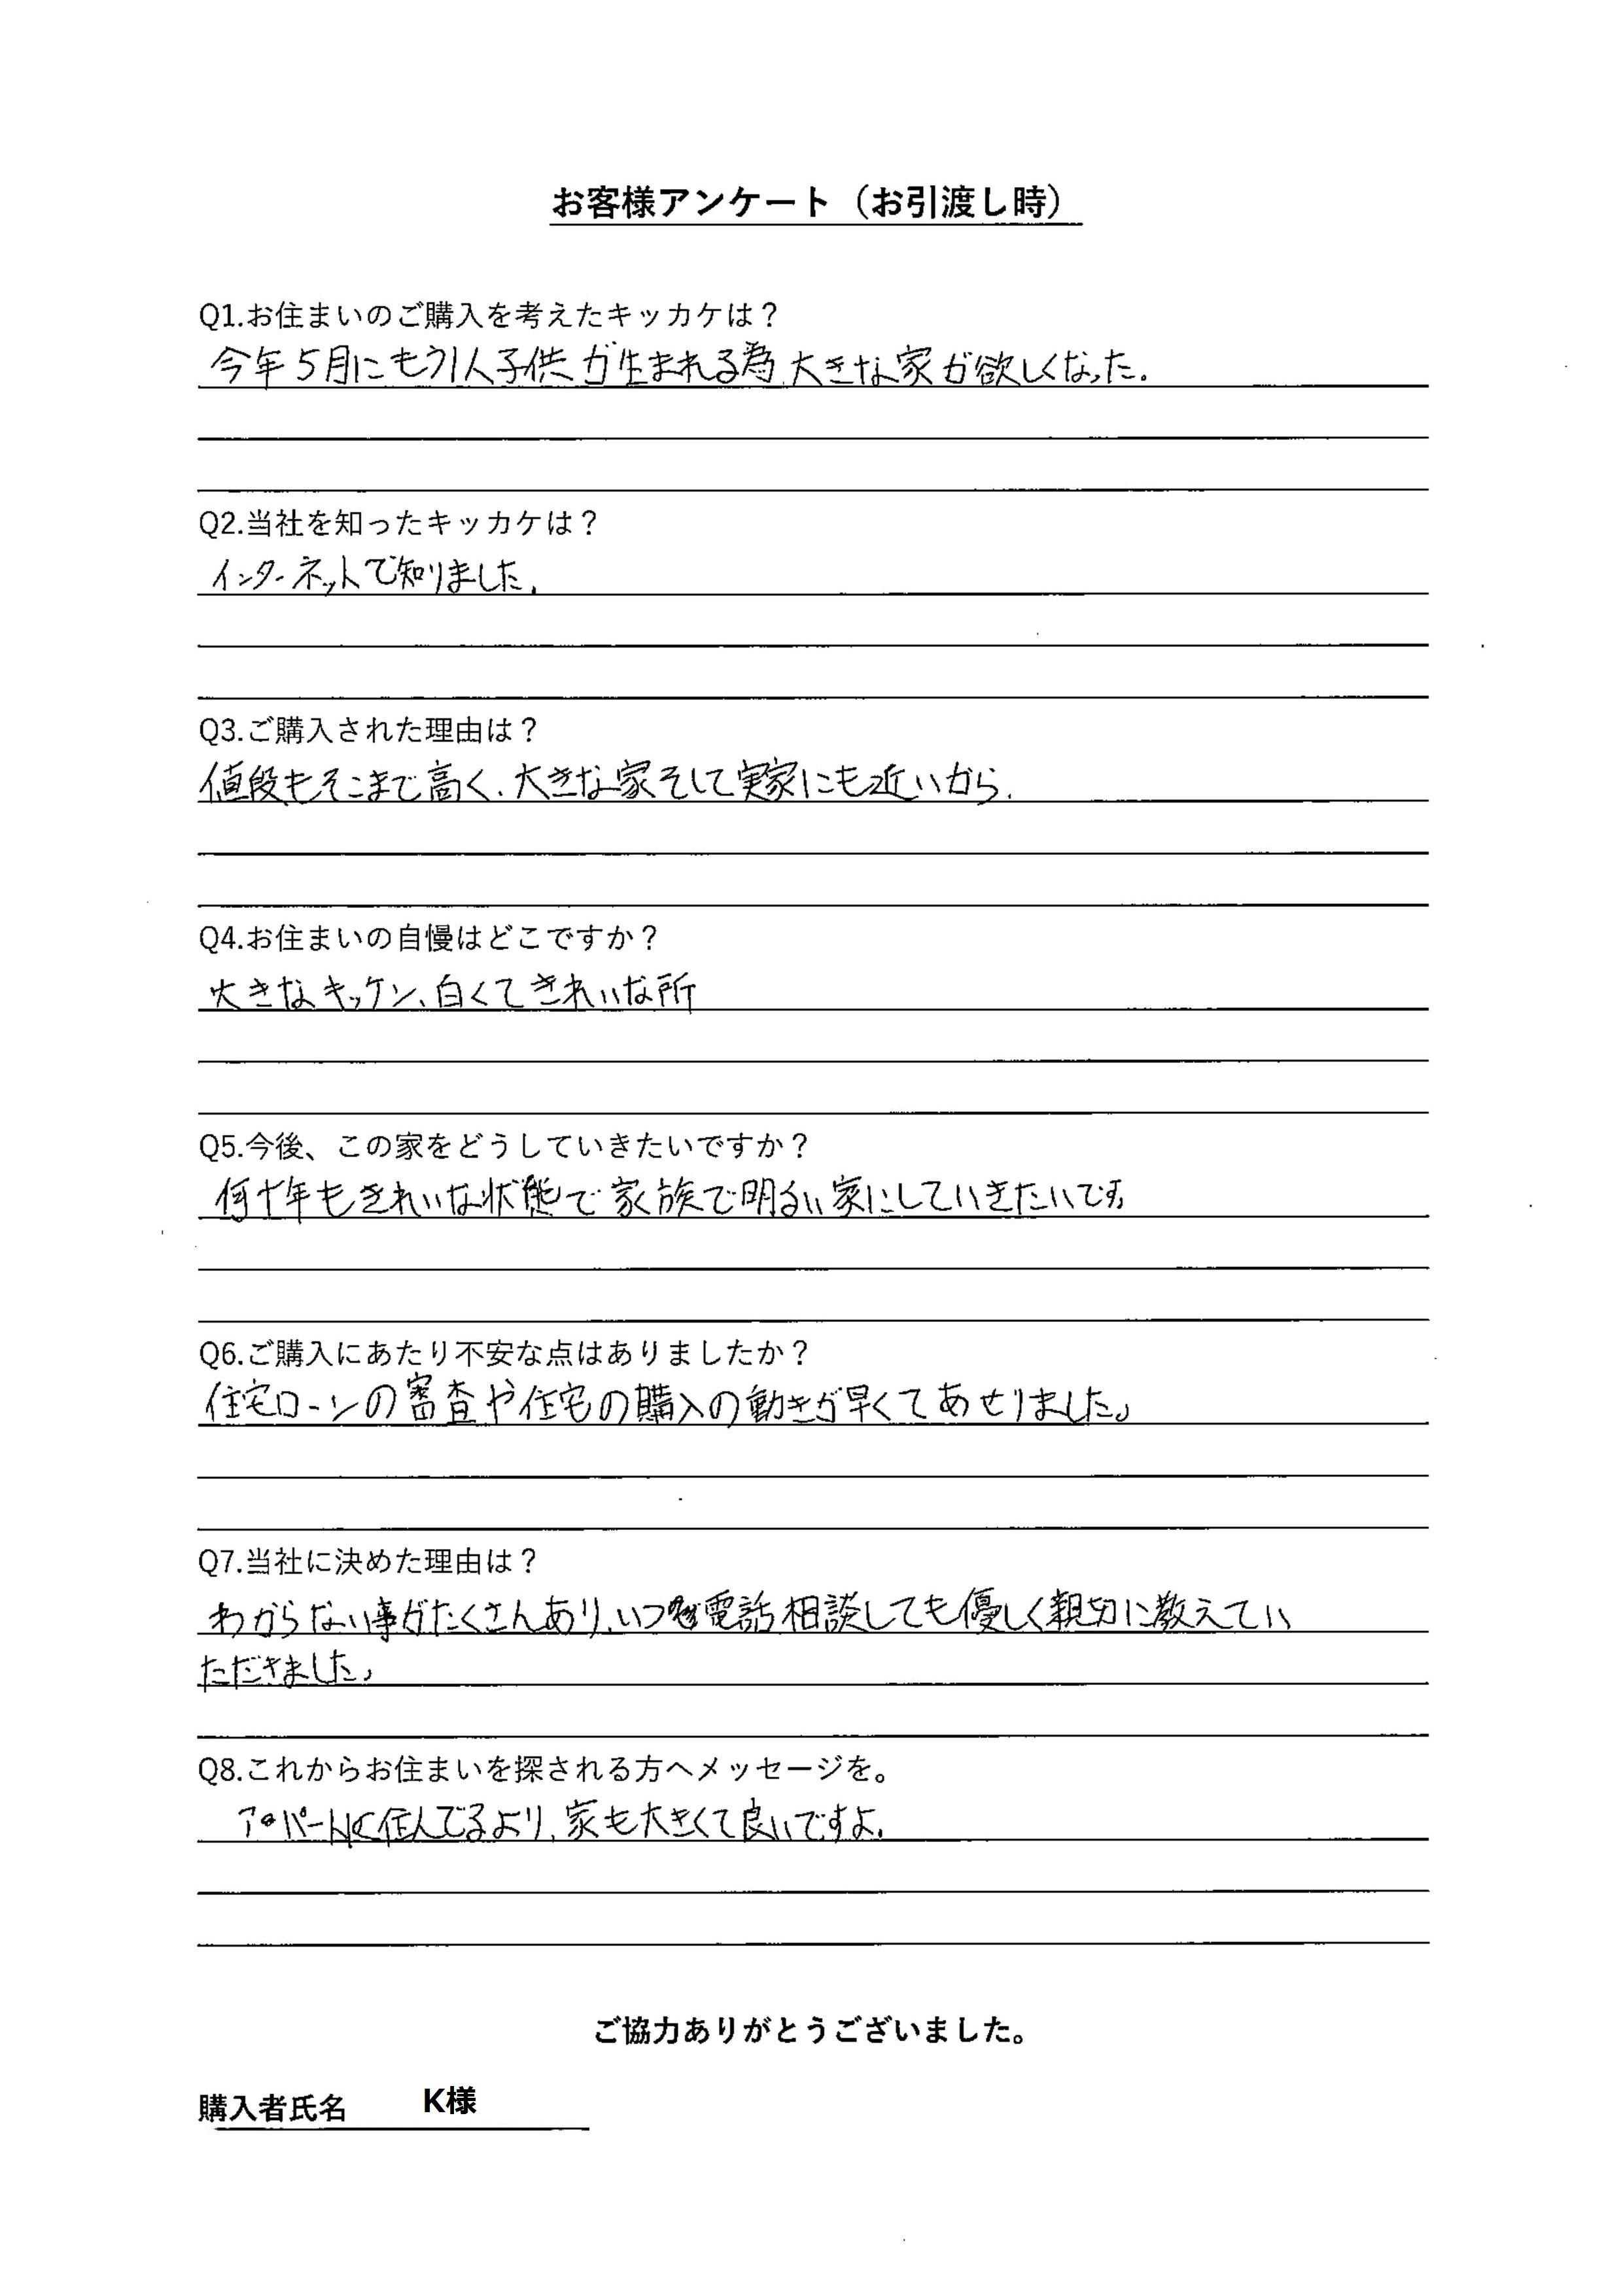 お客様アンケート（お引渡し時）
Q1.お住まいのご購入を考えたキッカケは？
今年5月にもう1人子供が生まれる為大きな家が欲しくなった.
Q2.当社を知ったキッカケは？
インターネットで知りました.
Q3.ご購入された理由は？
値段もそこまで高く、大きな家そして実家にも近いから.
Q4.お住まいの自慢はどこですか？
大きなキッケン、白くてきれいな所
Q5.今後、この家をどうしていきたいですか？
何十年もきれいな状態で家族で明るい家にしていきたいです
Q6.ご購入にあたり不安な点はありましたか？
住宅ローンの審査や住宅の購入の動きが早くてあせりました。
Q7.当社に決めた理由は？
わからない事がたくさんあり、いつも電話相談しても優しく親切に教えてい
ただきました。
Q8.これからお住まいを探される方へメッセージを。
アパートに住んでるより、家も大きくて良いですよ.
ご協力ありがとうございました。
購入者氏名 K様